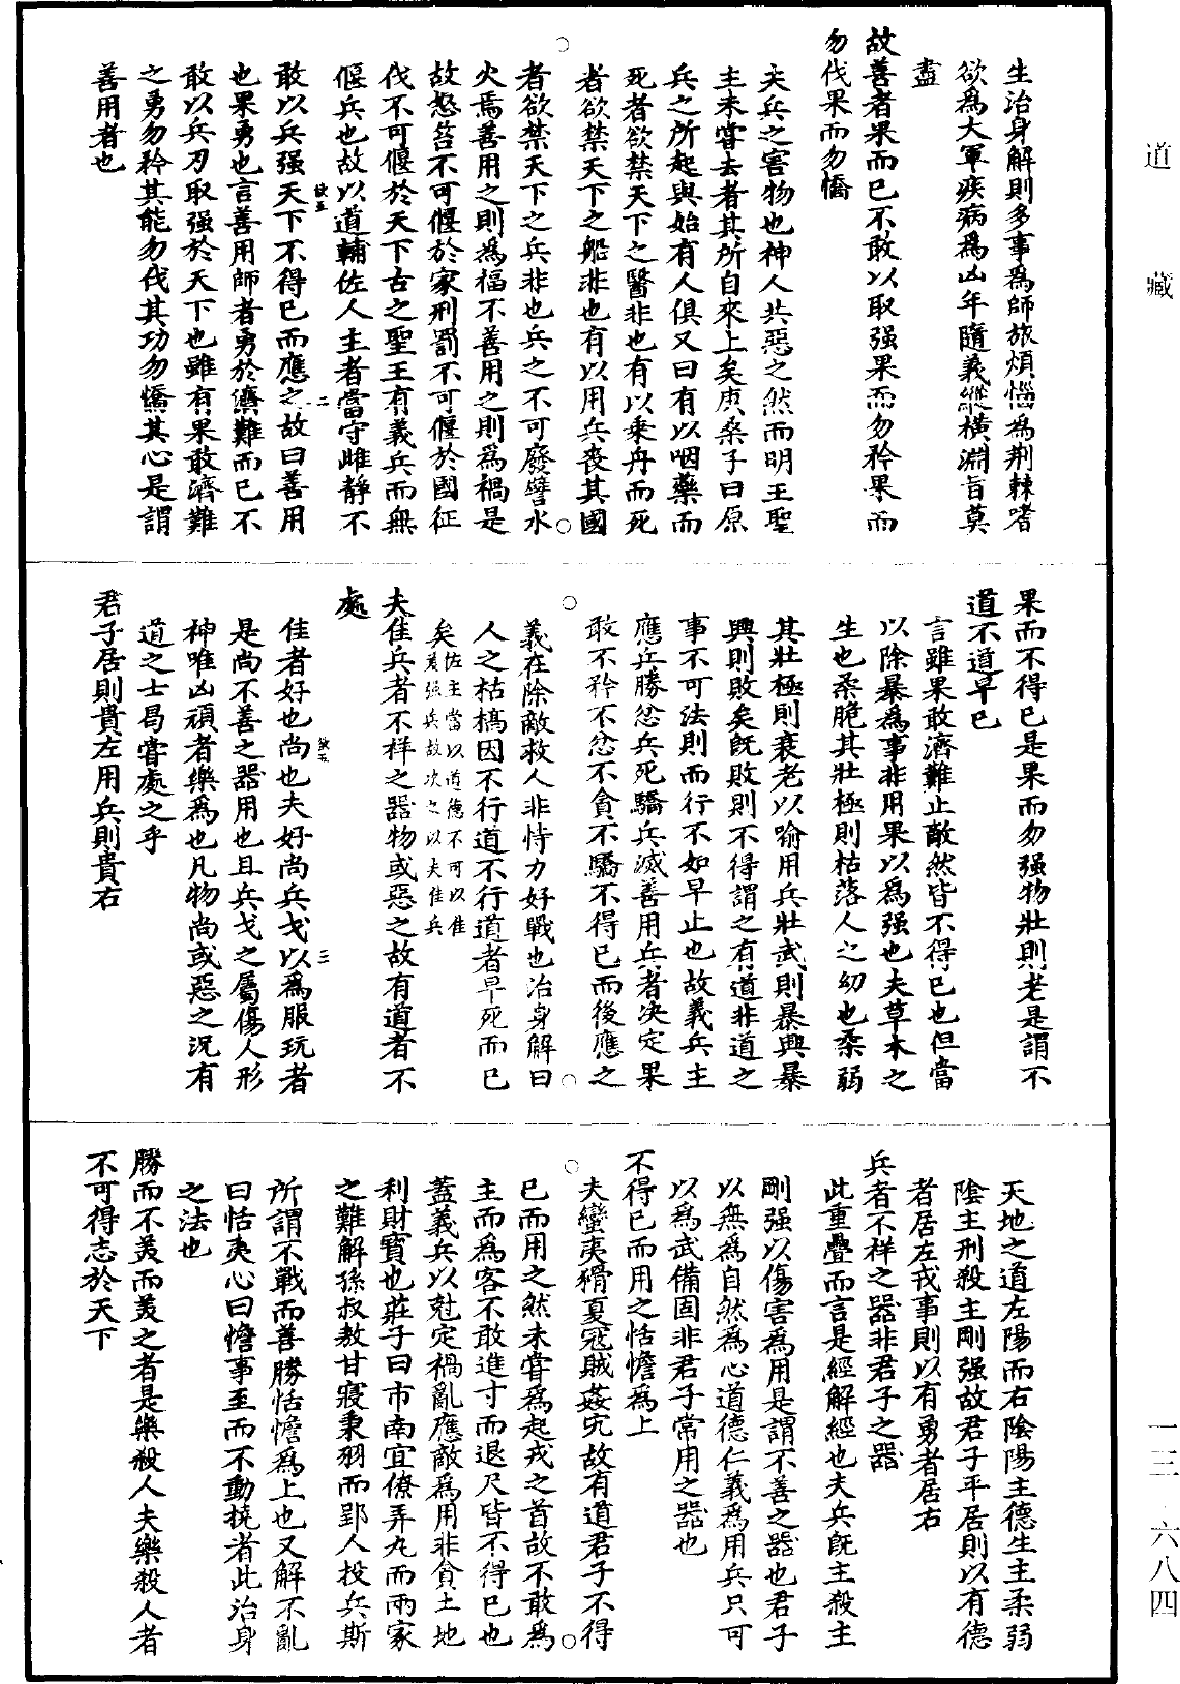 道藏
生治身解則多事為師旅煩惱為荆棘嗜
欲為大軍疾病為凶年隨義縱橫淵旨莫
盡
故善者果而已不敢以取强果而勿矜果而
勿伐果而勿憍
夫兵之害物也神人共惡之然而明王聖
主未甞去者其所自來上矣庚桑子曰原
兵之所起與始有人俱又曰有以咽藥而
死者欲禁天下之醫非也有以乗舟而死
者欲禁天下之船非也有以用兵喪其國
者欲禁天下之兵非也兵之不可廢譬水
火焉善用之則為福不善用之則為禍是
故怒笞不可偃於家刑罰不可偃於國征
伐不可偃於天下古之聖王有義兵而無
偃兵也故以道輔佐人主者當守雌靜不
敢以兵强天下不得已而應之故曰善用
也果勇也言善用師者勇於濟難而已不
敢以兵刃取强於天下也雖有果敢濟難
之勇勿矜其能勿伐其功勿憍其心是謂
善用者也
果而不得已是果而勿强物壯則老是謂不
道不道早已
言雖果敢濟難止敵然皆不得已也但當
以除暴為事非用果以為强也夫草木之
生也柔脆其壯極則枯落人之幼也柔弱
其壯極則衰老以喻用兵壯武則暴興暴
興則敗矣既敗則不得謂之有道非道之
事不可法則而行不如早止也故義兵主
應兵勝忿兵死驕兵滅善用兵者决定果
敢不矜不忿不貪不驕不得已而後應之
義在除敵救人非恃力好戰也治身解曰
人之枯槁因不行道不行道者早死而已
矣佐主當以道德不可以隹
夫隹兵者不祥之器物或惡之故有道者不
處
佳者好也尚也夫好尚兵戈以為服玩者
是尚不善之器用也且兵戈之屬傷人形
神唯凶頑者樂為也凡物尚或惡之況有
道之士曷甞處之乎
君子居則貴左用兵則貴右
天地之道左陽而右陰陽主德生主柔弱
陰主刑殺主剛强故君子平居則以有德
者居左戎事則以有勇者居右
兵者不祥之器非君子之器
此重疊而言是經解經也夫兵既主殺主
剛强以傷害為用是謂不善之器也君子
以無為自然為心道德仁義為用兵只可
以為武備固非君子常用之器也
不得已而用之恬憺為上
夫蠻夷猾夏寇賊姦宄故有道君子不得
已而用之然未甞為起戎之首故不敢為
主而為客不敢進寸而退尺皆不得已也
蓋義兵以尅定禍亂應敵為用非貪土地
利財寶也莊子曰市南宜僚弄丸而兩家
之難解孫叔敖甘寢秉羽而郢人投兵斯
所謂不戰而善勝恬憺為上也又解不亂
曰恬夷心曰憺事至而不動撓者此治身
之法也
勝而不美而美之者是樂殺人夫樂殺人者
不可得志於天下
一三 六八四